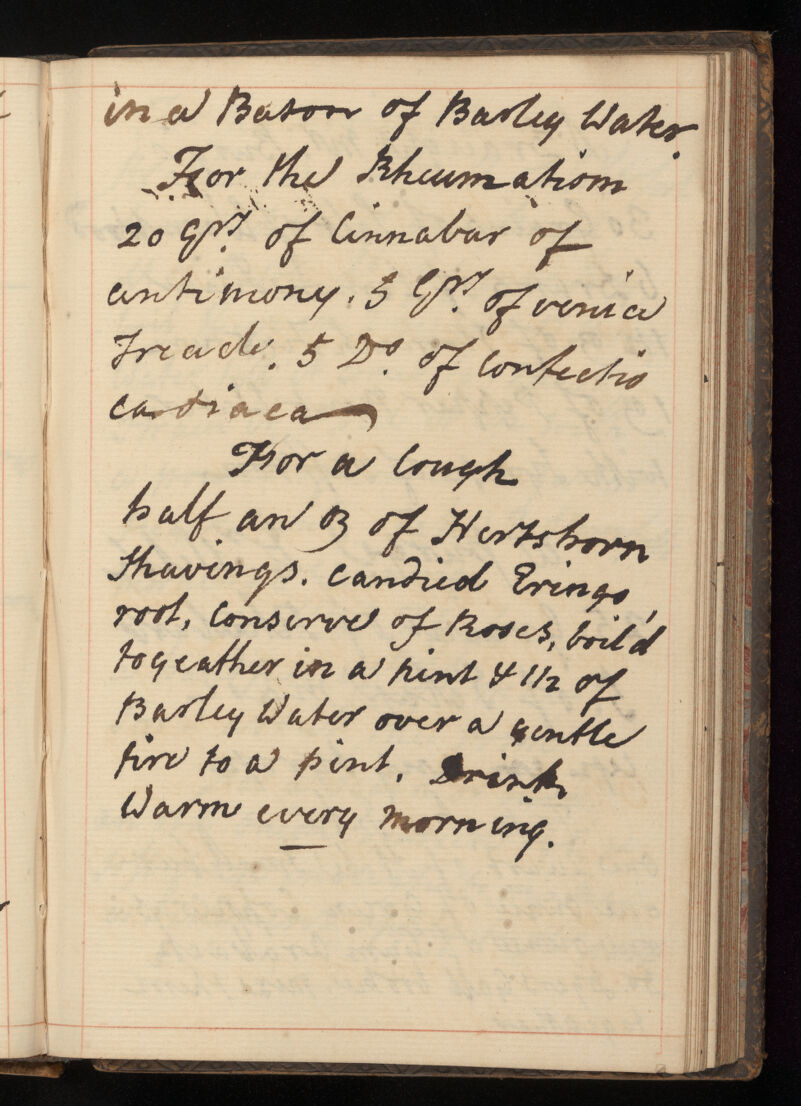 in a Bason of Barley Water.
For the Rheumatism
20 Grs. of Cinnabar of
antimony. 5 Grs. of venice
Treacle. 5 Do. of Confectio
cardiaca
For a Cough
half an oz of Hertshorn
Shavings. candied Eringo
root, Conserve of Roses, boil'd
togeather in a pint & 1/2 of
Barley Water over a gentle
fire to a pint. Drink
Warm every morning.